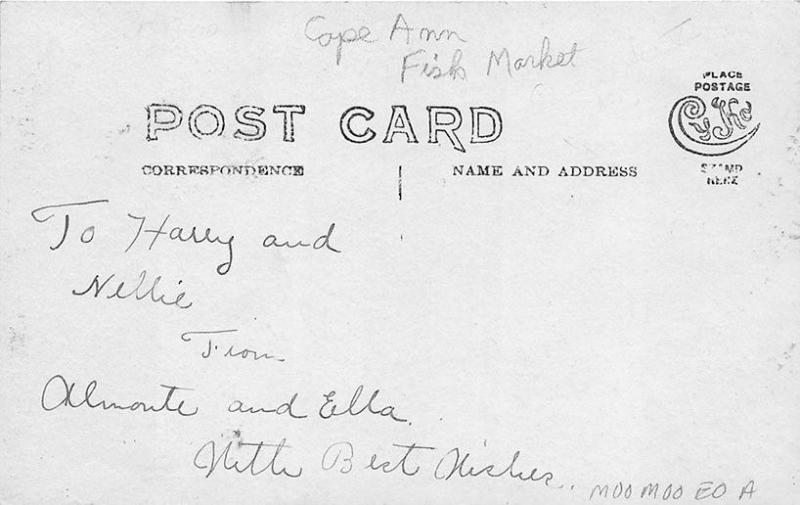 Cape Ann
Fish Market
PLACE
POSTAGE
CyKo
STAMP
HERE
POST CARD
CORRESPONDENCE
NAME AND ADDRESS
To Harry and
Nellie
From
Almonte and Ella.
With Best Wishes.
MOO MOO EO A